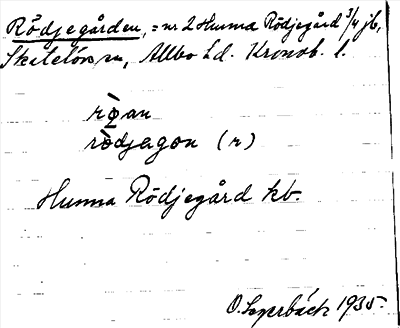 Rödjegården, = nr 2 Hunna Rödjegård 3/4 jb,
Skatelöv sn, Allbo hd. Kronob. l.
rø̀an
rödjagon (r)
Hunna Rödjegård kb.
O. 1935.